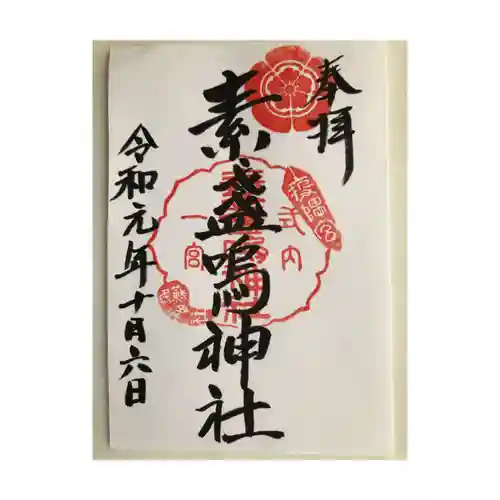 奉拝
素盞嗚神社
式内
一宮
令和元年十月六日